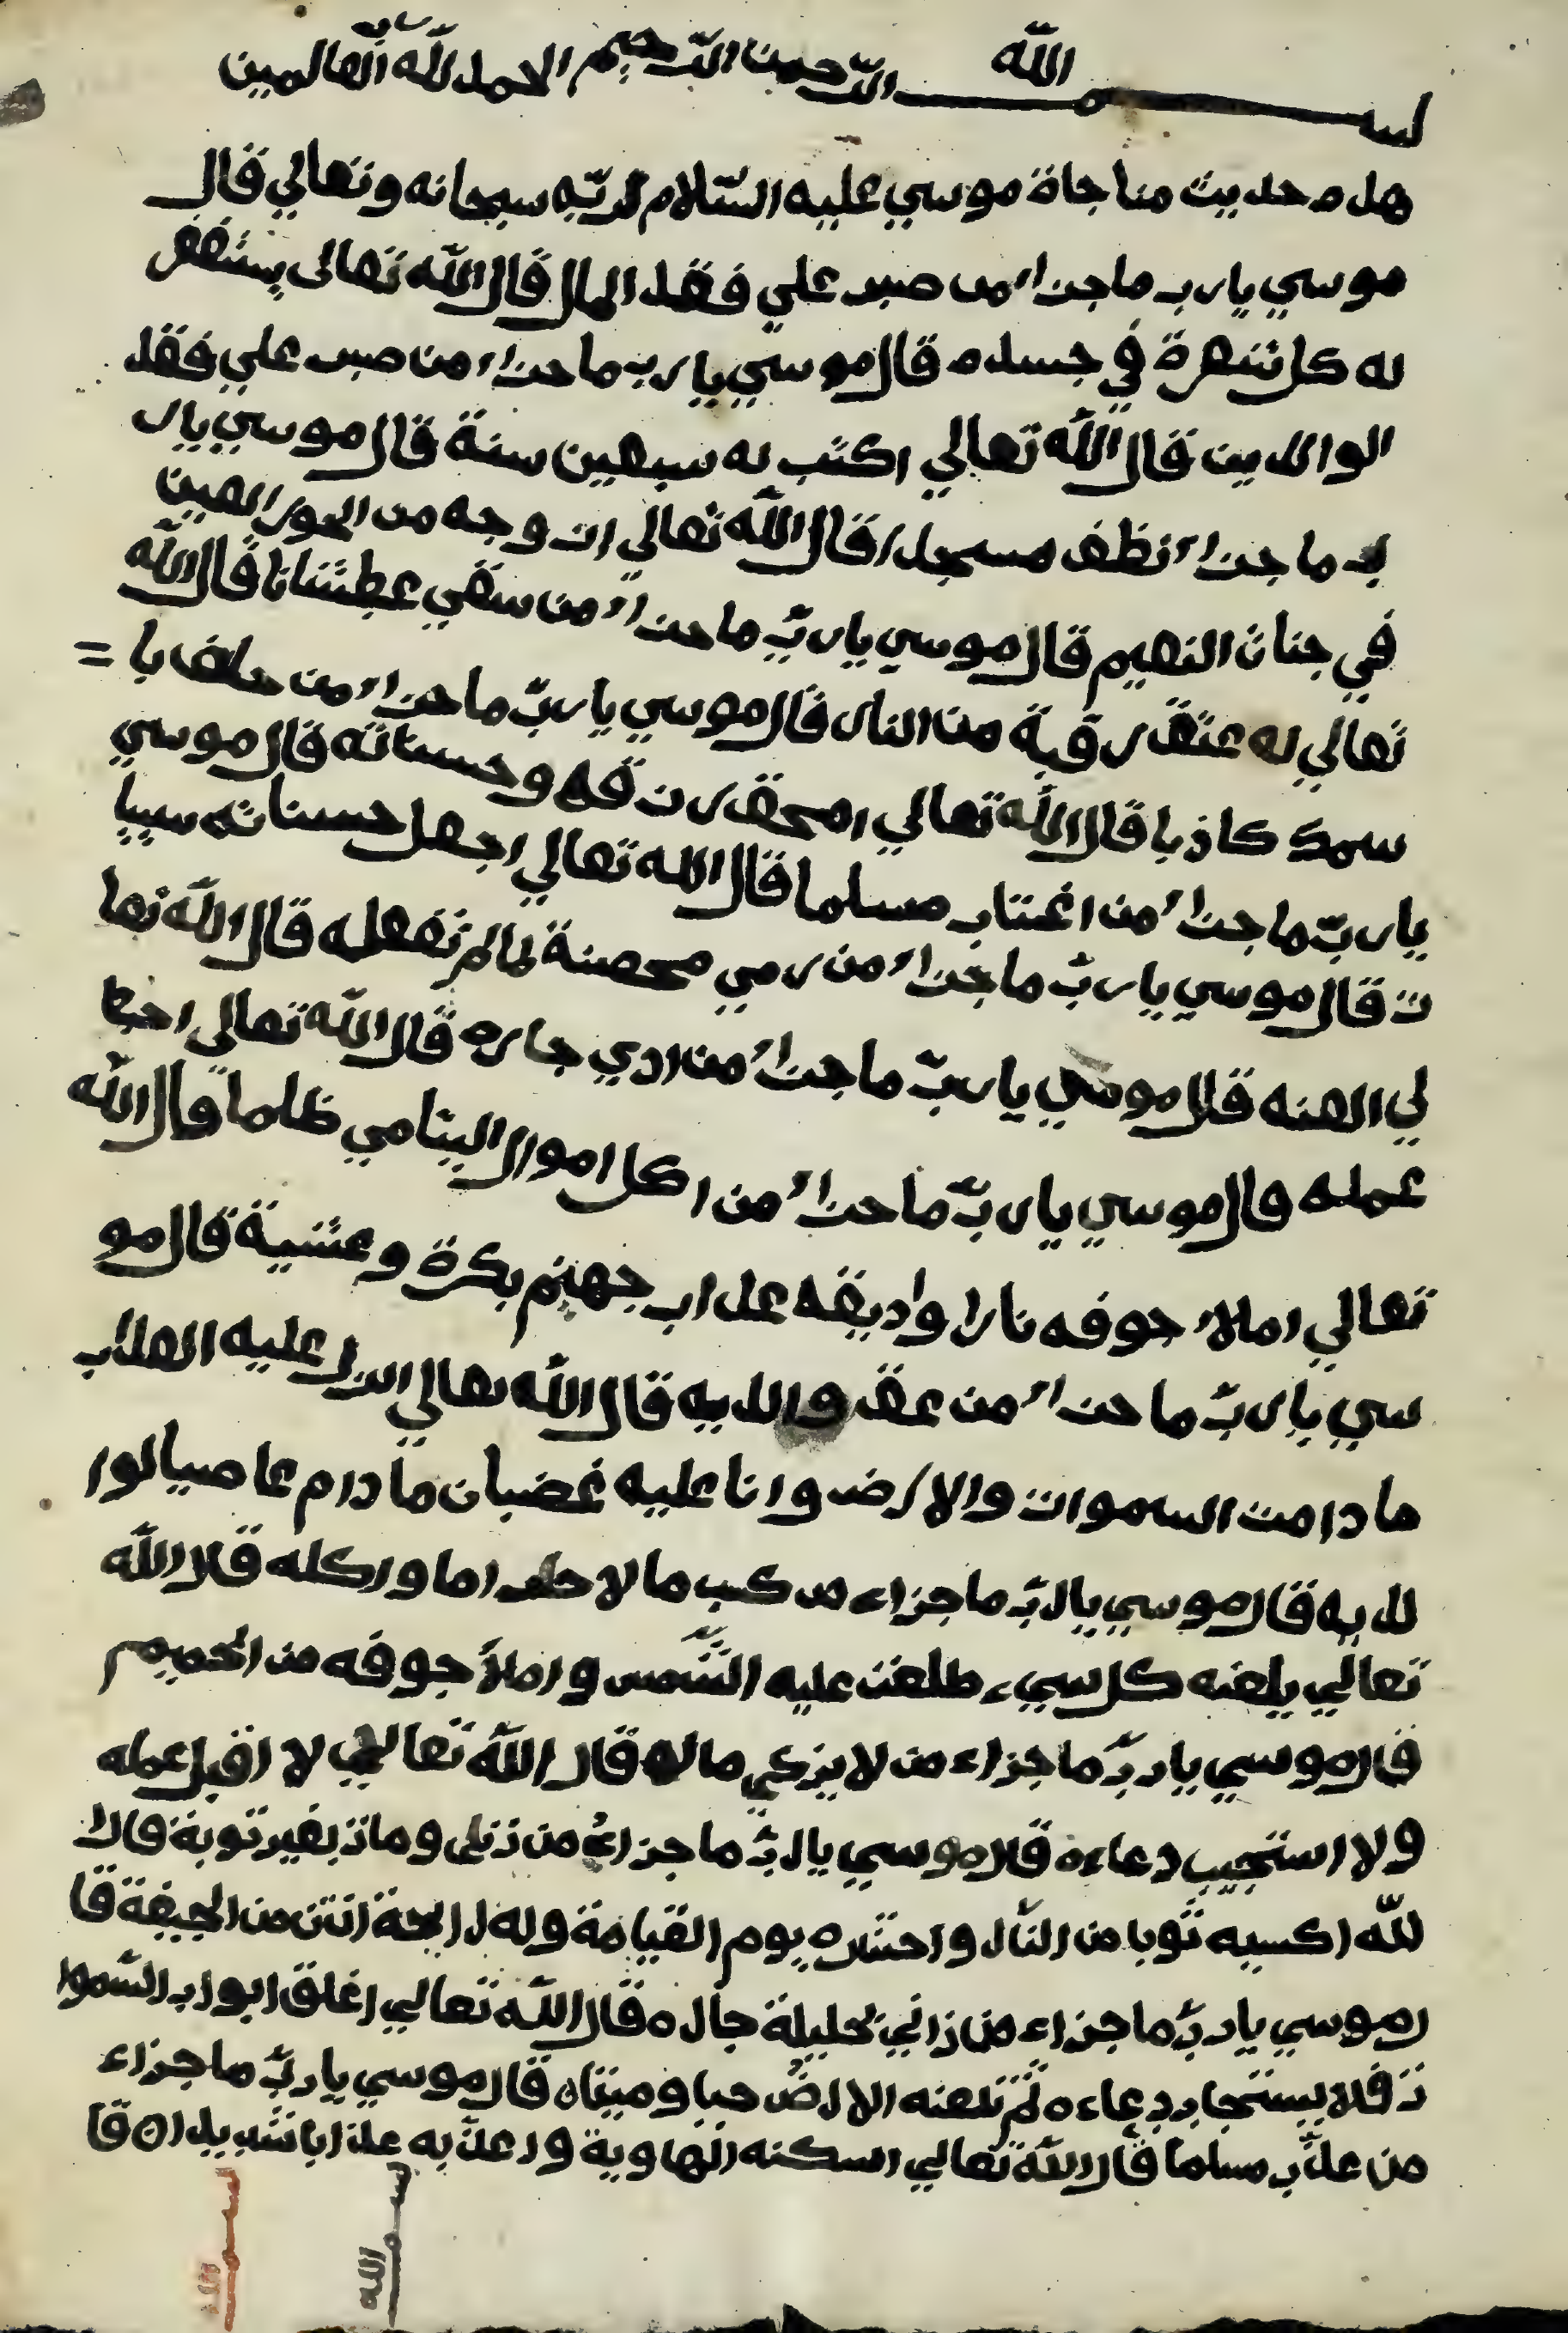 بسم الله الرّحمن الرّحيم الحمد للّه ربّ العالمين
هذه حديث مناجاة موسي عليه السّلام لربّه سبحانه وتعالي قال
موسي يارب ما جزاء من صبر علي فقد المال قال اللّه تعالى يستغفر
له كل شعرة في جسده قال موسي يارب ما جزاء من صبر علي فقد
الوالدين قال اللّه تعالي اكتب له سبعين سنة قال موسي يار
ب ما جزاء نظف مسجدا قال اللّه تعالي ازوجه من الحور العين
في جنات النعيم قال موسي ياربّ ما جزاء من سقي عطشانا قال اللّه
تعالي له عتق رقبة من النار قال موسي ياربّ ما جزاء من حلف با =
سمك كاذبا قال اللّه تعالي امحق رزقه وحسناته قال موسي
ياربّ ما جزاء من اغتاب مسلما قال الله تعالي اجعل حسناته سييا
ت قال موسي ياربّ ما جزاء من رمي محصنة لما لم تفعله قال اللّه تعا
لي العنه قال موسي ياربّ ما جزاء من اذي جاره قال اللّه تعالي احبط
عمله قال موسي ياربّ ما جزاء من اكل اموال اليتامي ظلما قال اللّه
تعالي املاء جوفه نارا واذيقه عذاب جهنم بكرة وعشية قال مو
سي ياربّ ما جزاء من عق والديه قال اللّه تعالي انزل عليه العذاب
ما دامت السموات والارض وانا عليه غضبان ما دام عاصيا لوا
لديه قال موسي ياربّ ما جزاء من كسب مالا حراما واكله قال اللّه
تعالي يلعنه كل سيء طلعت عليه الشّمس واملأ جوفه من الحميم
قال موسي ياربّ ما جزاء من لا يزكي ماله قال اللّه تعالي لا اقبل عمله
ولا استجيب دعاءه قال موسي ياربّ ما جزاء من زنى ومات بغير توبة قال ا
للّه اكسيه ثوبا من النّار واحشره يوم القيامة وله رايحة انتن من الجيفة قا
ل موسي ياربّ ما جزاء من زاني بحليلة جاره قال اللّه تعالي اغلق ابواب السّموا
ت فلا يستجاب دعاءه ثم تلعنه الارض حيا وميتاه قال موسي ياربّ ما جزاء
من عذّب مسلما قال اللّه تعالي اسكنه الهاوية واعذّبه عذابا شديدا ه قا
بسم الله
بسم الله